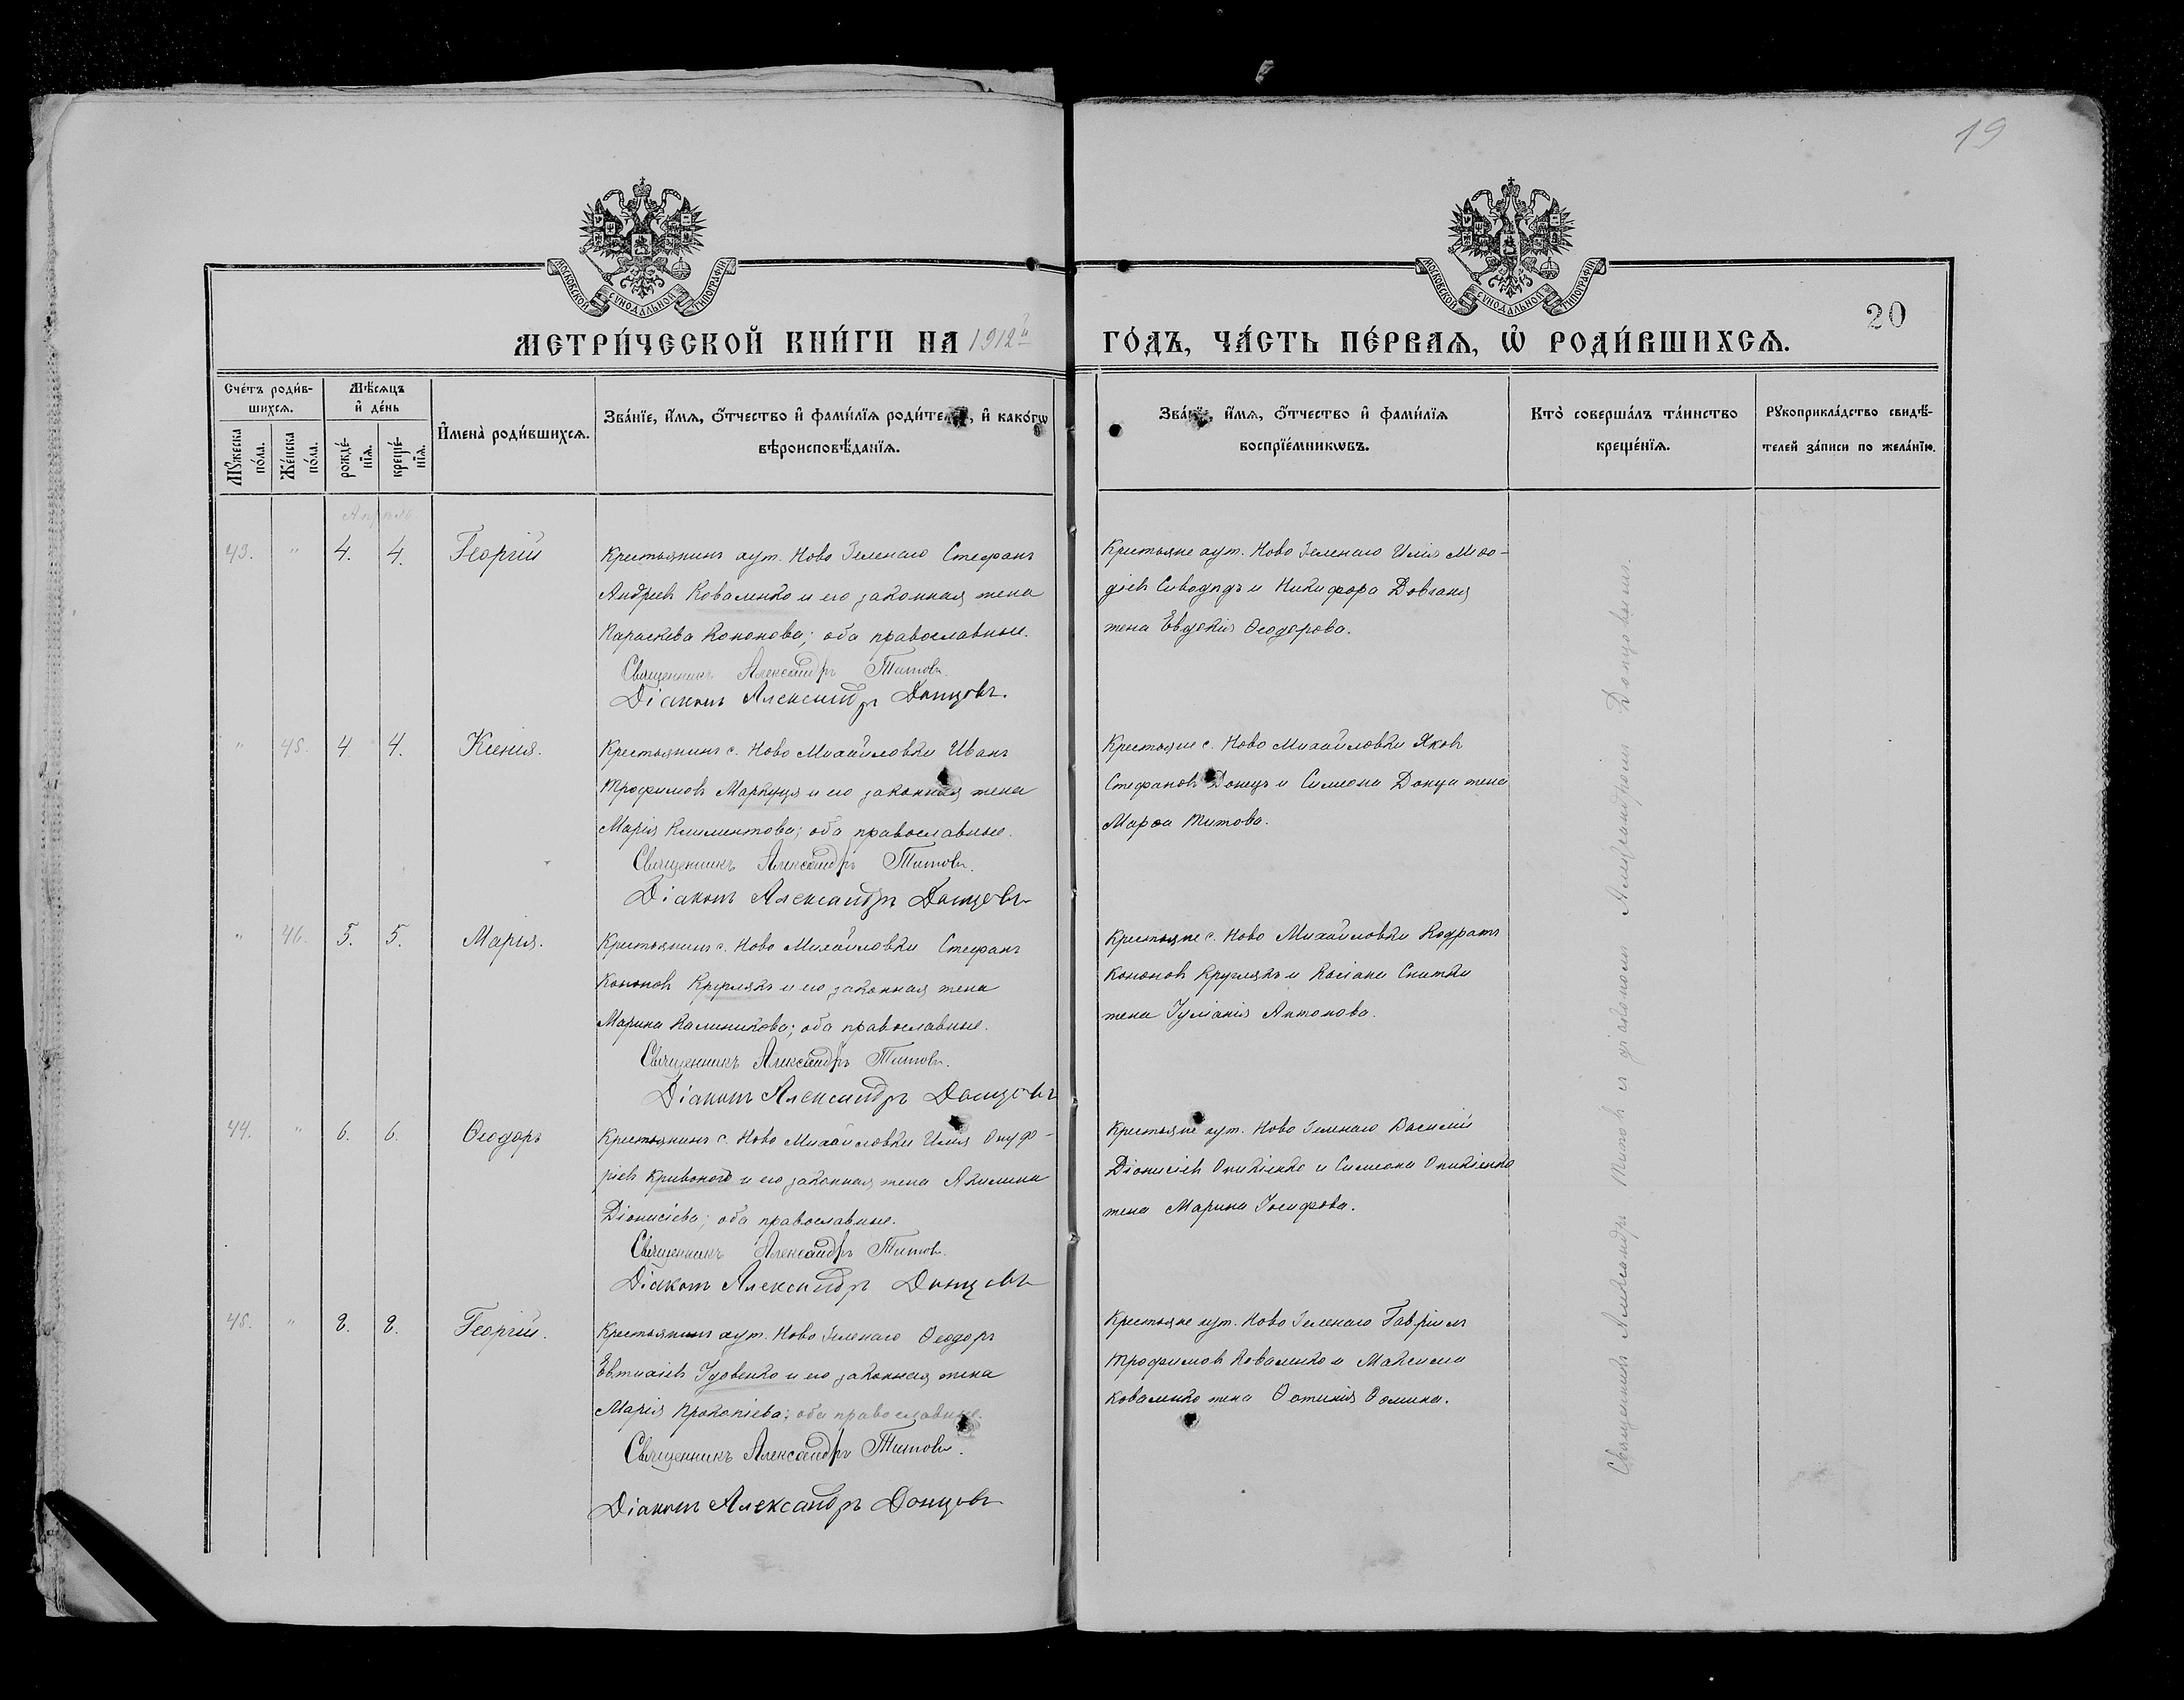 19
МОСКОВСКОЙ СѴНОДАЛЬНОЙ ТИПОГРАФІИ
МОСКОВСКОЙ СѴНОДАЛЬНОЙ ТИПОГРАФІИ
20
МЕТРИ́ЧЕСКОЙ КНИ́ГИ НА 1912й ГО́ДЪ, ЧА́СТЬ ПЕ́РВАѦ, Ѡ РОДИ́ВШИХСѦ.
Сче́тъ роди́в-
шихсѧ.
Мꙋ́жеска по́ла.
Же́нска по́ла.
Мѣ́сѧцъ
и҆ де́нь
рожде́-
нїѧ.
креще́-
нїѧ.
И҆мена̀ роди́вшихсѧ.
Зва́нїе, и҆́мѧ, ѻ҆́тчество и҆ фами́лїѧ роди́телей, и҆ како́гѡ
вѣроисповѣ́данїѧ.
Зва́нїе, и҆́мѧ, ѻ҆́тчество и҆ фами́лїѧ
воспрїе́мникѡвъ.
Кто̀ соверша́лъ та́инство
креще́нїѧ.
Рꙋкоприкла́дство свидѣ́-
телей за́писи по жела́нїю.
Апрѣль
43. " 4. 4. Георгій
Крестьянинъ хут. Ново Зеленаго Стефанъ
Андреевъ Коваленко и его законная жена
Параскева Кононова; оба православные.
Священникъ Александръ Титовъ.
Діаконъ Александръ Донцовъ.
Крестьяне хут. Ново Зеленаго Илія Меѳо-
діевъ Сиводѣдъ и Никифора Довганя
жена Евдокія Ѳеодорова.
" 45. 4 4. Ксенія.
Крестьянинъ с. Ново Михайловки Иванъ
Трофимовъ Маркуця и его законная жена
Марія Климентова; оба православные.
Священникъ Александръ Титовъ.
Діаконъ Александръ Донцовъ
Крестьяне с. Ново Михайловки Яковъ
Стефановъ Донецъ и Симеона Донца жена
Марѳа Титова.
" 46. 5. 5. Марія.
Крестьянинъ с. Ново Михайловки Стефанъ
Кононовъ Круглякъ и его законная жена
Марина Калиникова; оба православные.
Священникъ Александръ Титовъ.
Діаконъ Александръ Донцовъ
Крестьяне с. Ново Михайловки Кодратъ
Кононовъ Круглякъ и Касіана Снитки
жена Іуліанія Антонова.
44. " 6. 6. Ѳеодоръ
Крестьянинъ с. Ново Михайловки Илія Онуф-
ріевъ Кривоногъ и его законная жена Акилина
Діонисіева; оба православные.
Священникъ Александръ Титовъ.
Діаконъ Александръ Донцовъ
Крестьяне хут. Ново Зеленаго Василій
Діонисіевъ Оникіенко и Симеона Оникіенко
жена Марина Іосифова.
45. " 8. 8. Георгій.
Крестьянинъ хут. Ново Зеленаго Ѳеодоръ
Евтихіевъ Удовенко и его законная жена
Марія Прокопіева; оба православные.
Священникъ Александръ Титовъ.
Діаконъ Александръ Донцовъ
Крестьяне хут. Ново Зеленаго Гавріилъ
Трофимовъ Коваленко и Максима
Коваленко жена Ѳотинія Ѳомина.
Священникъ Александръ Титовъ и діакономъ Александромъ Донцовымъ.